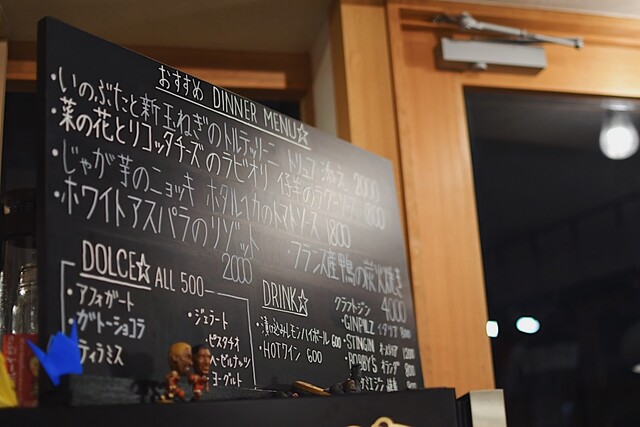 おすすめ DINNER MENU☆
・いのぶたと新玉ねぎのトルテッリーニ トリュフ添え 2000
・菜の花とリコッタチーズのラビオリ 仔羊のラグーソース 1800
・じゃが芋のニョッキ ホタルイカのトマトソース 1800
・ホワイトアスパラのリゾット 2000
・フランス産鴨の炭火焼き 4000
DOLCE☆ ALL 500
・アフォガート
・ガトーショコラ
・ティラミス
・ジェラート
・ピスタチオ
・ヘーゼルナッツ
・ヨーグルト
DRINK☆
・漬け込みレモンハイボール 600
・HOTワイン 600
クラフトジン
・GINPILZ ドイツ 800
・STINGIN
・BOBBY'S オランダ 800